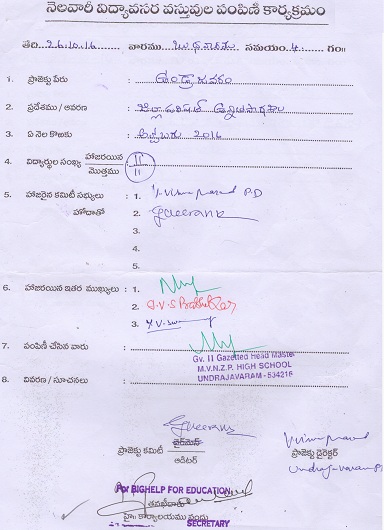 నెలవారీ విద్యావసర వస్తువుల పంపిణి కార్యక్రమం
తేది. 26.10.16 వారము బుధవారము సమయం. 4. గం॥
1. ప్రాజెక్టు పేరు : ఉండ్రాజవరం
2. ప్రదేశము / ఆవరణ : జిల్లా పరిషత్ ఉన్నత పాఠశాల
3. ఏ నెల కొఱకు : అక్టోబరు 2016
4. విద్యార్థుల సంఖ్య హాజరయిన : 11
మొత్తము 11
5. హాజరైన కమిటీ సభ్యులు : 1. P.D
హోదాతో 2.
3.
4.
5.
6. హాజరయిన ఇతర ముఖ్యులు : 1.
2.
3.
7. పంపిణీ చేసిన వారు :
Gv. II Gazetted Head Master
M.V.N.Z.P. HIGH SCHOOL
UNDRAJAVARAM - 534216
8. వివరణ / సూచనలు :
ప్రాజెక్టు కమిటీ చైర్మెన్ ప్రాజెక్టు డైరెక్టర్
ఆడిటర్ Undrajavaram
For BIGHELP FOR EDUCATION
తనిఖీదారు
కార్యాలయము
SECRETARY